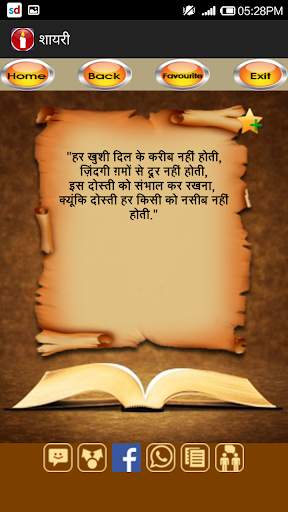 sd
05:28PM
शायरी
Home
Back
Favourite
Exit
"हर खुशी दिल के करीब नहीं होती,
ज़िंदगी ग़मों से दूर नहीं होती,
इस दोस्ती को संभाल कर रखना,
क्यूंकि दोस्ती हर किसी को नसीब नहीं
होती."